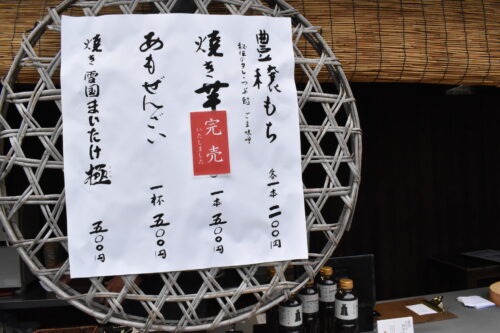 豊穣もち 各一本 二〇〇円
秘伝のタレ・つぶ餡 ごま味噌
焼き芋 一本 五〇〇円
完売
いたしました
あもぜんざい 一杯 五〇〇円
焼き雪国まいたけ極 五〇〇円